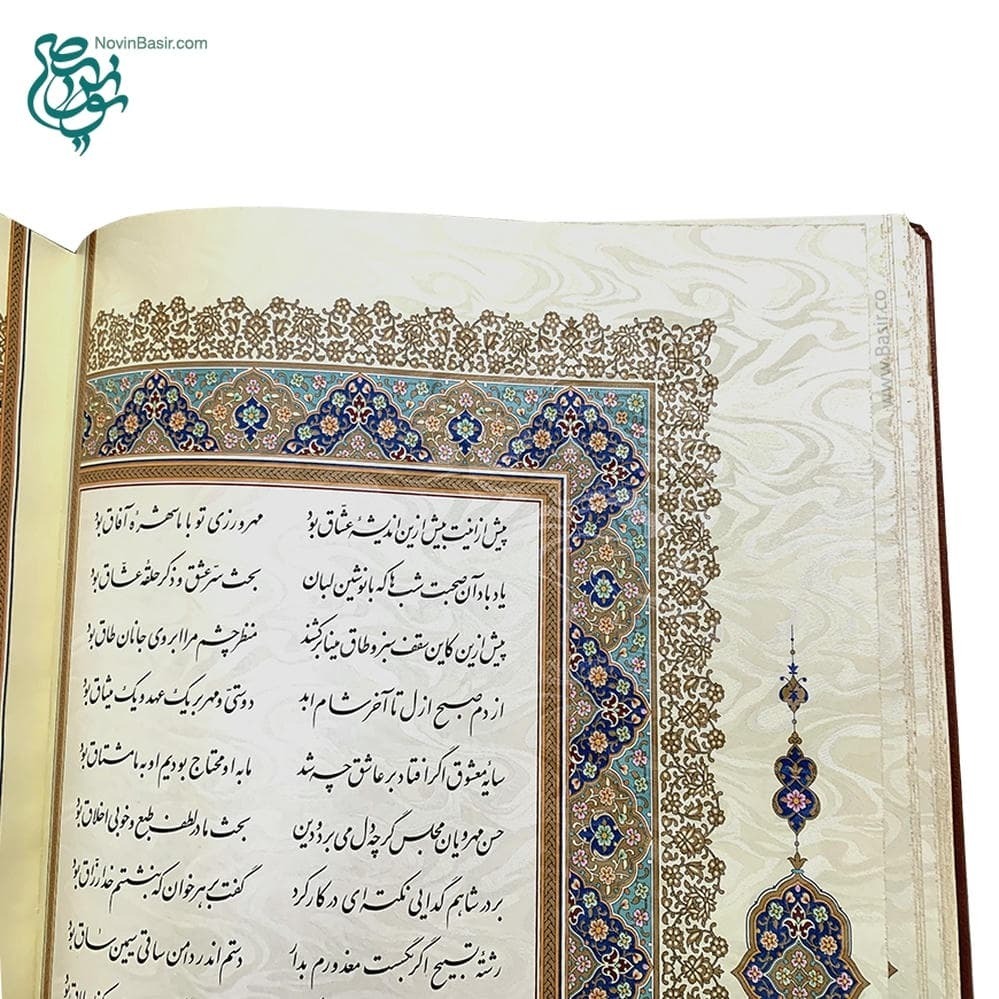 NovinBasir.com
نوین بصیر
www.Basir.co
پیش ازاینت بیش ازین اندیشهٔ عشّاق بود مهرورزی تو با ما شهرهٔ آفاق بود
یاد باد آن صحبت شب ها که با نوشین لبان بحث سرّ عشق و ذکر حلقهٔ عشاق بود
پیش ازین کاین سقف سبز و طاق مینا برکشند منظر چشم مرا ابروی جانان طاق بود
از دم صبح ازل تا آخر شام ابد دوستی و مهر بر یک عهد و یک میثاق بود
سایهٔ معشوق اگر افتاد بر عاشق چه شد ما به او محتاج بودیم او به ما مشتاق بود
حسن مهرویان مجلس گرچه دل می برد و دین بحث ما در لطف طبع و خوبی اخلاق بود
بر در شاهم گدایی نکته ای در کار کرد گفت بر هر خوان که بنشستم خدا رزّاق بود
رشتهٔ تسبیح اگر بگسست معذورم بدار دستم اندر دامن ساقی سیمین ساق بود